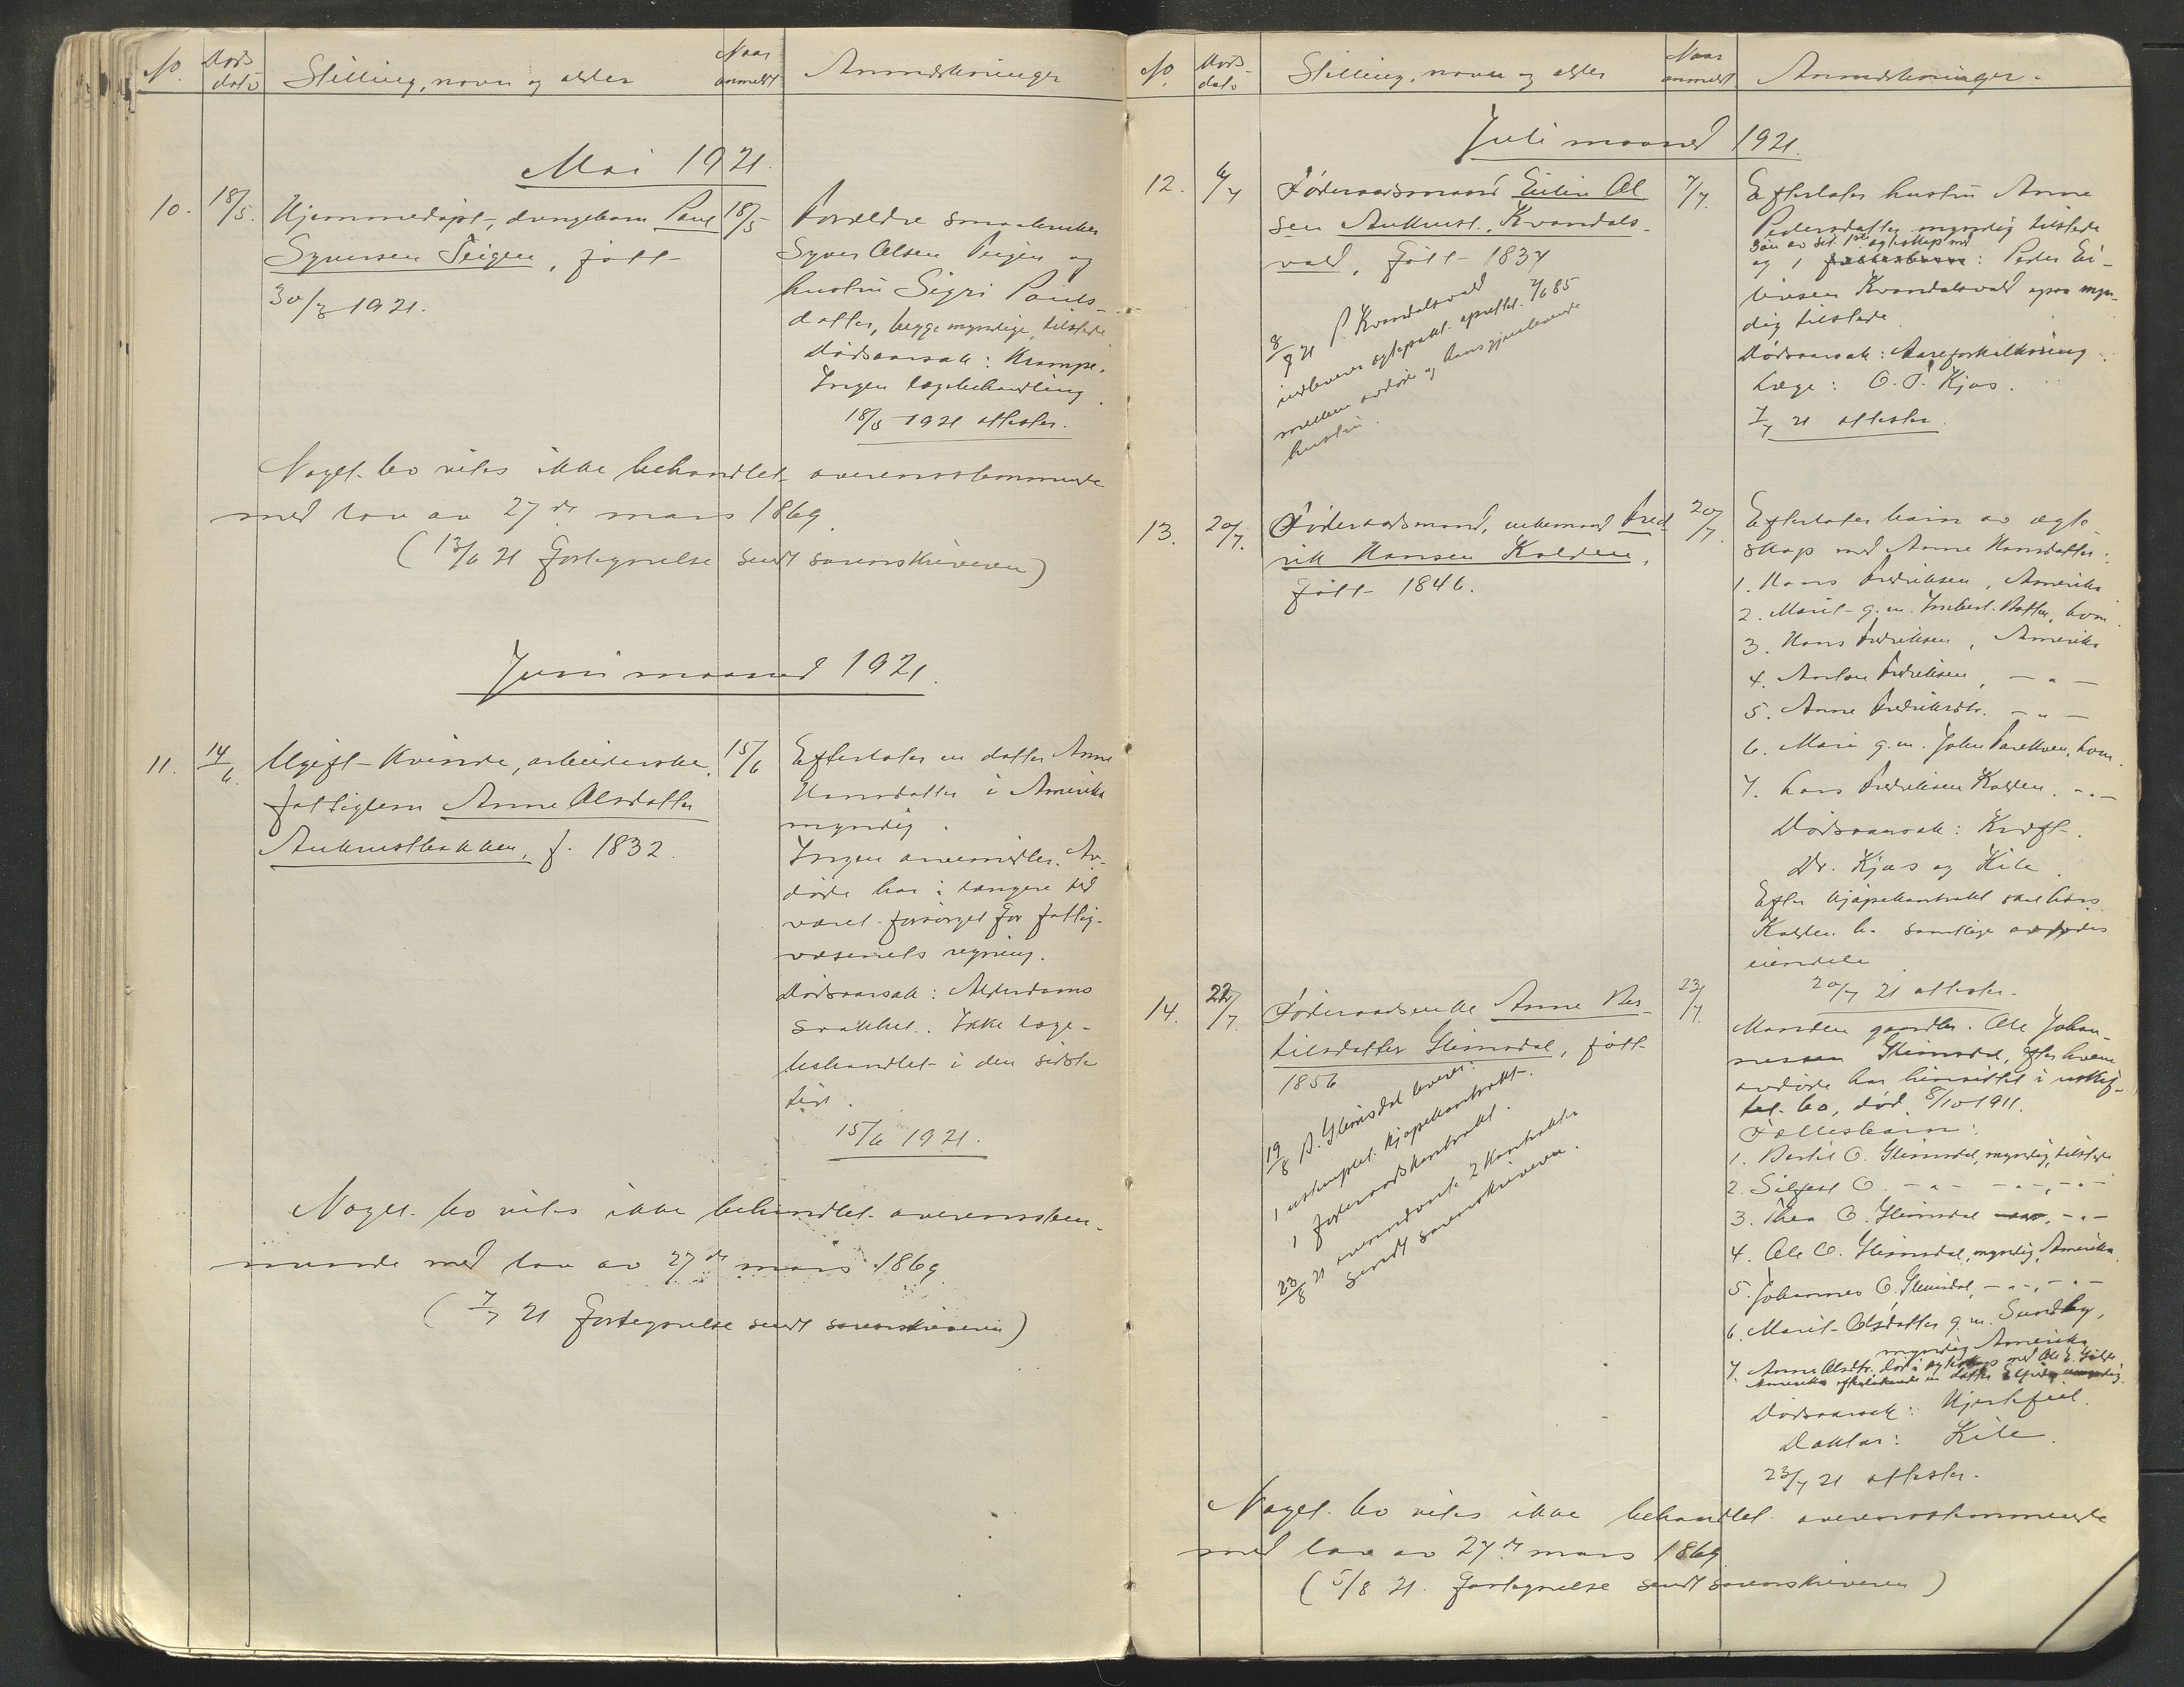 No.
Døds
dato
Stilling, navn og alder
Naar
anmeldt
Anmerkninger
Mai 1921.
10.
18/5.
Hjemmedøpt, drengebarn Paul
Syversen Teigen, født
30/3 1921.
18/5
Forældre smaabruker
Syver Olsen Teigen og
hustru Sigri Pauls-
datter, begge myndige, tilstede
Dødsaarsak: Krampe.
Ingen lægebehandling.
18/5 1921 attester.
Noget bo vites ikke behandlet overensstemmende
med lov av 27de mars 1869.
(13/6 21 Fortegnelse sendt sorenskriveren)
Juni maaned 1921.
11.
14/6.
Ugift kvinde, arbeiderske,
fattiglem Anne Olsdatter
Aukrustbakken, f. 1832.
15/6
Efterlater en datter Anne
Hansdatter i Amerika
myndig.
Ingen arvemidler. Av-
døde har i længere tid
været forsørget for fattig-
væsenets regning.
Dødsaarsak: Alderdoms
svakhet. Ikke læge-
behandlet i den sidste
tid.
15/6 1921.
Noget bo vites ikke behandlet overensstem-
mende med lov av 27de mars 1869
(7/7 21 Fortegnelse sendt sorenskriveren)
No.
Døds-
dato
Stilling, navn og alder
Naar
anmeldt
Anmerkninger.
Juli maaned 1921.
12.
6/7
Føderaadsmand Eilin Ol
sen Aukrust, Kvandals-
vold, født 1837
8/8 21 P. Kvandalsvold
indleverer egtepakt oprettet 7/6 85
mellem avdøde og hans gjenlevende
hustru.
7/7.
Efterlater hustru Anne
Pedersdatter myndig tilstede
søn av det 1ste egteskap med
og 1 : Peder Ei-
linsen Kvandalsvold ogsaa myn-
dig tilstede.
Dødsaarsak: Aareforkalkning.
Læge: O. T. Kjos.
7/7 21 attester.
13.
20/7.
Føderaadsmand, enkemand Fred-
rik Hansen Kolden,
født 1846.
20/7.
Efterlater barn av egte-
skap med Anne Hansdatter:
1. Hans Fredriksen, Amerika
2. Marit g.m. Botten, Lom.
3. Hans Fredriksen, Amerika
4. Anton Fredriksen, — " —
5. Anne Fredriksdtr. — " —
6. Mari g.m. John Lom.
7. Lars Fredriksen Kolden. — " —
Dødsaarsak: Kræft.
Dr. Kjos og Kile.
Efter kjøpekontrakt skal Lars
Kolden ha samtlige avdødes
eiendele.
20/7 21 attester.
14.
22/7.
Føderaadsenke Anne Ber-
tilsdatter Glimsdal, født
1856
19/8 B. Glimsdal leverer:
1 ustemplet kjøpekontrakt.
1 føderaadskontrakt.
23/8 21 ovennævnte 2 kontrakter
sendt sorenskriveren.
23/7.
Manden gaardbr. Ole Johan-
nessen Glimsdal, efter hvem
avdøde har hensittet i uskif-
tet bo, død 8/10 1911.
Fællesbarn:
1. Bertil O. Glimsdal, myndig, tilstede
2. Silfest O. — " — — " —, — " —
3. Thea O. Glimsdal — " —
4. Ole O. Glimsdal, myndig, Amerika.
5. Johannes O. Glimsdal, — " —, — " —
6. Marit Olsdatter g.m. Sundby,
myndig, Amerika
7. Anne Olsdtr. død i egteskap med Ole E.
Amerika efterlatende en datter
Dødsaarsak: Hjertefeil.
Doktor: Kile.
23/7 21 attester.
Noget bo vites ikke behandlet overensstemmende
med lov av 27de mars 1869.
(5/8 21. Fortegnelse sendt sorenskriveren)